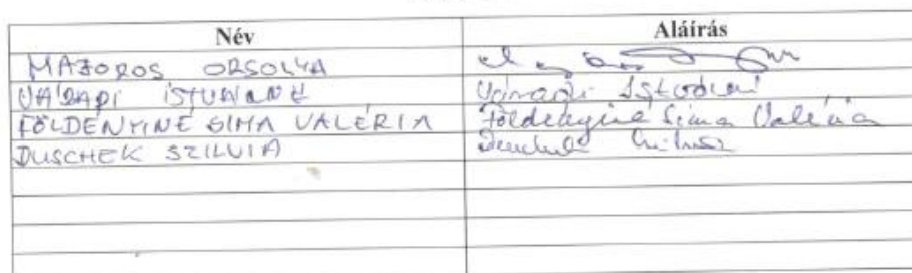 Név Aláírás
MAJOROS ORSOLYA
VÁRADI ISTVÁNNÉ Váradi Istvánné
FÖLDÉNYINÉ SIMA VALÉRIA Földényiné Sima Valéria
DUSCHEK SZILVIA Duschek Szilvia